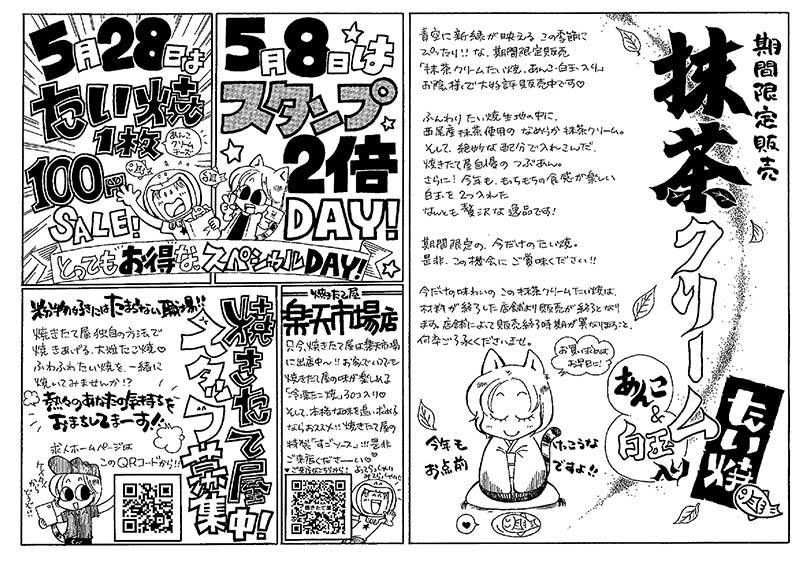 期間限定販売
抹茶クリーム
あんこ
&
白玉
入り
たい焼
青空に新緑が映える この季節に
ぴったり!! な、期間限定販売
「抹茶クリームたい焼、あんこ・白玉入り」
お陰様で大好評販売中です♡
ふんわり たい焼生地の中に、
西尾産抹茶使用の なめらか抹茶クリーム。
そして、絶妙な配分で入れこんだ、
焼きたて屋自慢の つぶあん。
さらに! 今年も、もっちもちの食感が楽しい
白玉を 2つ入れた
なんとも 贅沢な逸品です!
期間限定の、今だけのたい焼。
是非、この機会に ご賞味ください!!
今だけの味わいの この抹茶クリームたい焼は、
材料が終了した店舗より販売が終了となり
ます。店舗によって販売終了時期が異なりますこと、
何卒ご了承くださいませ。
お買い求めは
お早目に!
今年も
お点前
けっこうな
ですよ!!
5月8日は
スタンプ
2倍
DAY!
5月28日は
たい焼
1枚
あんこ
クリーム
チーズ
100円
SALE!
とってもお得な、スペシャルDAY!
焼きたて屋
楽天市場店
只今、焼きたて屋は楽天市場
に出店中〜!! お家でいつでも
焼きたて屋の味が楽しめる
「冷凍たこ焼」30コ入り♡
そして、本格的な味を追い求める
ならおススメ!! 焼きたて屋の
特製「すごソース」!!! 是非
ご来店くださーい♡
♥ご来店はこちらから!
焼きたて屋
スタッフ募集中!
粉物好きにはたまらない職場!!
焼きたて屋独自の方法で
焼きあげる、大粒たこ焼♡
ふわふわたい焼を、一緒に
焼いてみませんか!?
熱々のあなたの気持ちを
おまちしてまーす!!
求人ホームページは
このQRコードから!!